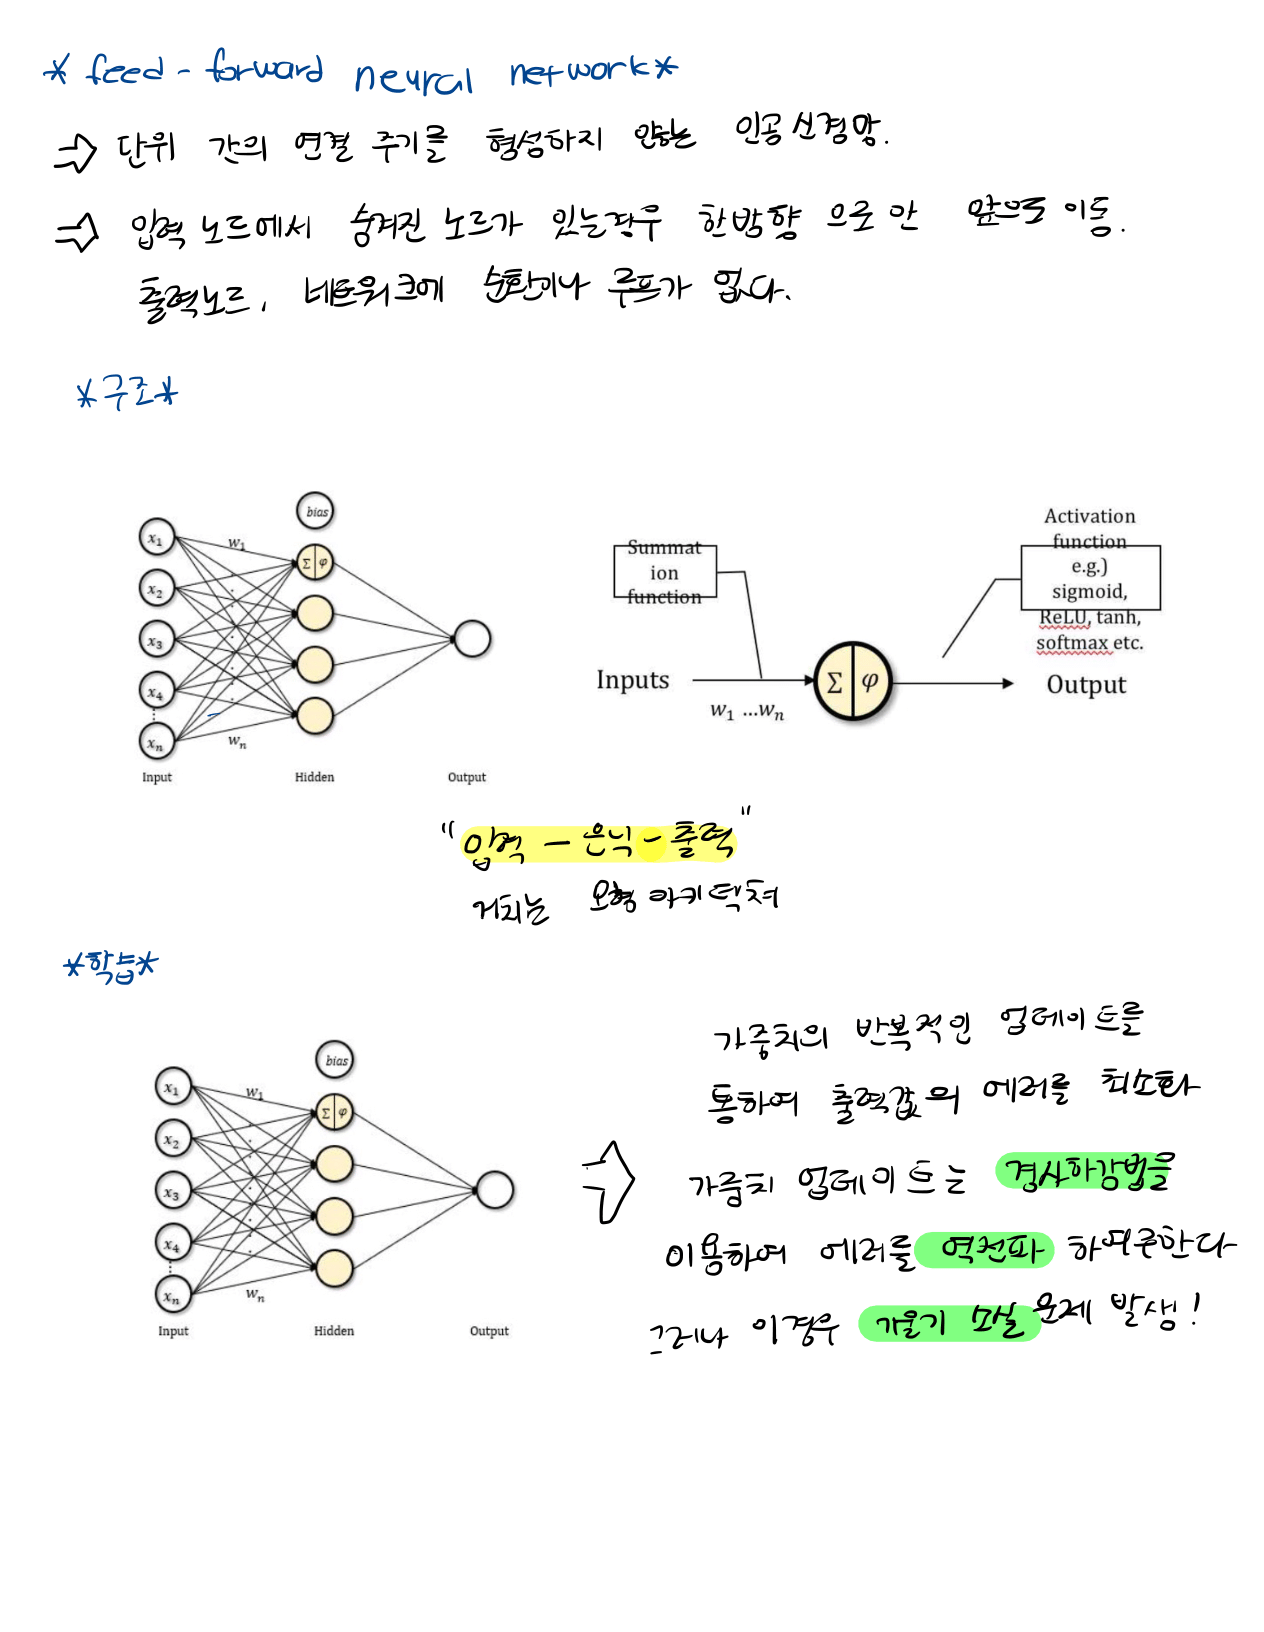 * feed - forward neural network *
⇒ 단위 간의 연결 주기를 형성하지 않는 인공신경망.
⇒ 입력 노드에서 숨겨진 노드가 있는경우 한방향 으로 만 앞으로 이동.
출력노드, 네트워크에 순환이나 루프가 없다.
*구조*
bias
x1
x2
x3
x4
xn
w1
wn
Σ φ
Input Hidden Output
Summat
ion
function
Activation
function
e.g.)
sigmoid,
ReLU, tanh,
softmax etc.
Inputs
w1 ...wn
Σ φ
Output
"입력 - 은닉 - 출력"
거치는 모형 아키텍쳐
*학습*
bias
x1
x2
x3
x4
xn
w1
wn
Σ φ
Input Hidden Output
가중치의 반복적인 업데이트를
통하여 출력값의 에러를 최소화
⇒ 가중치 업데이트는 경사하강법을
이용하여 에러를 역전파 하여준한다
그러나 이경우 기울기 소실 문제 발생!